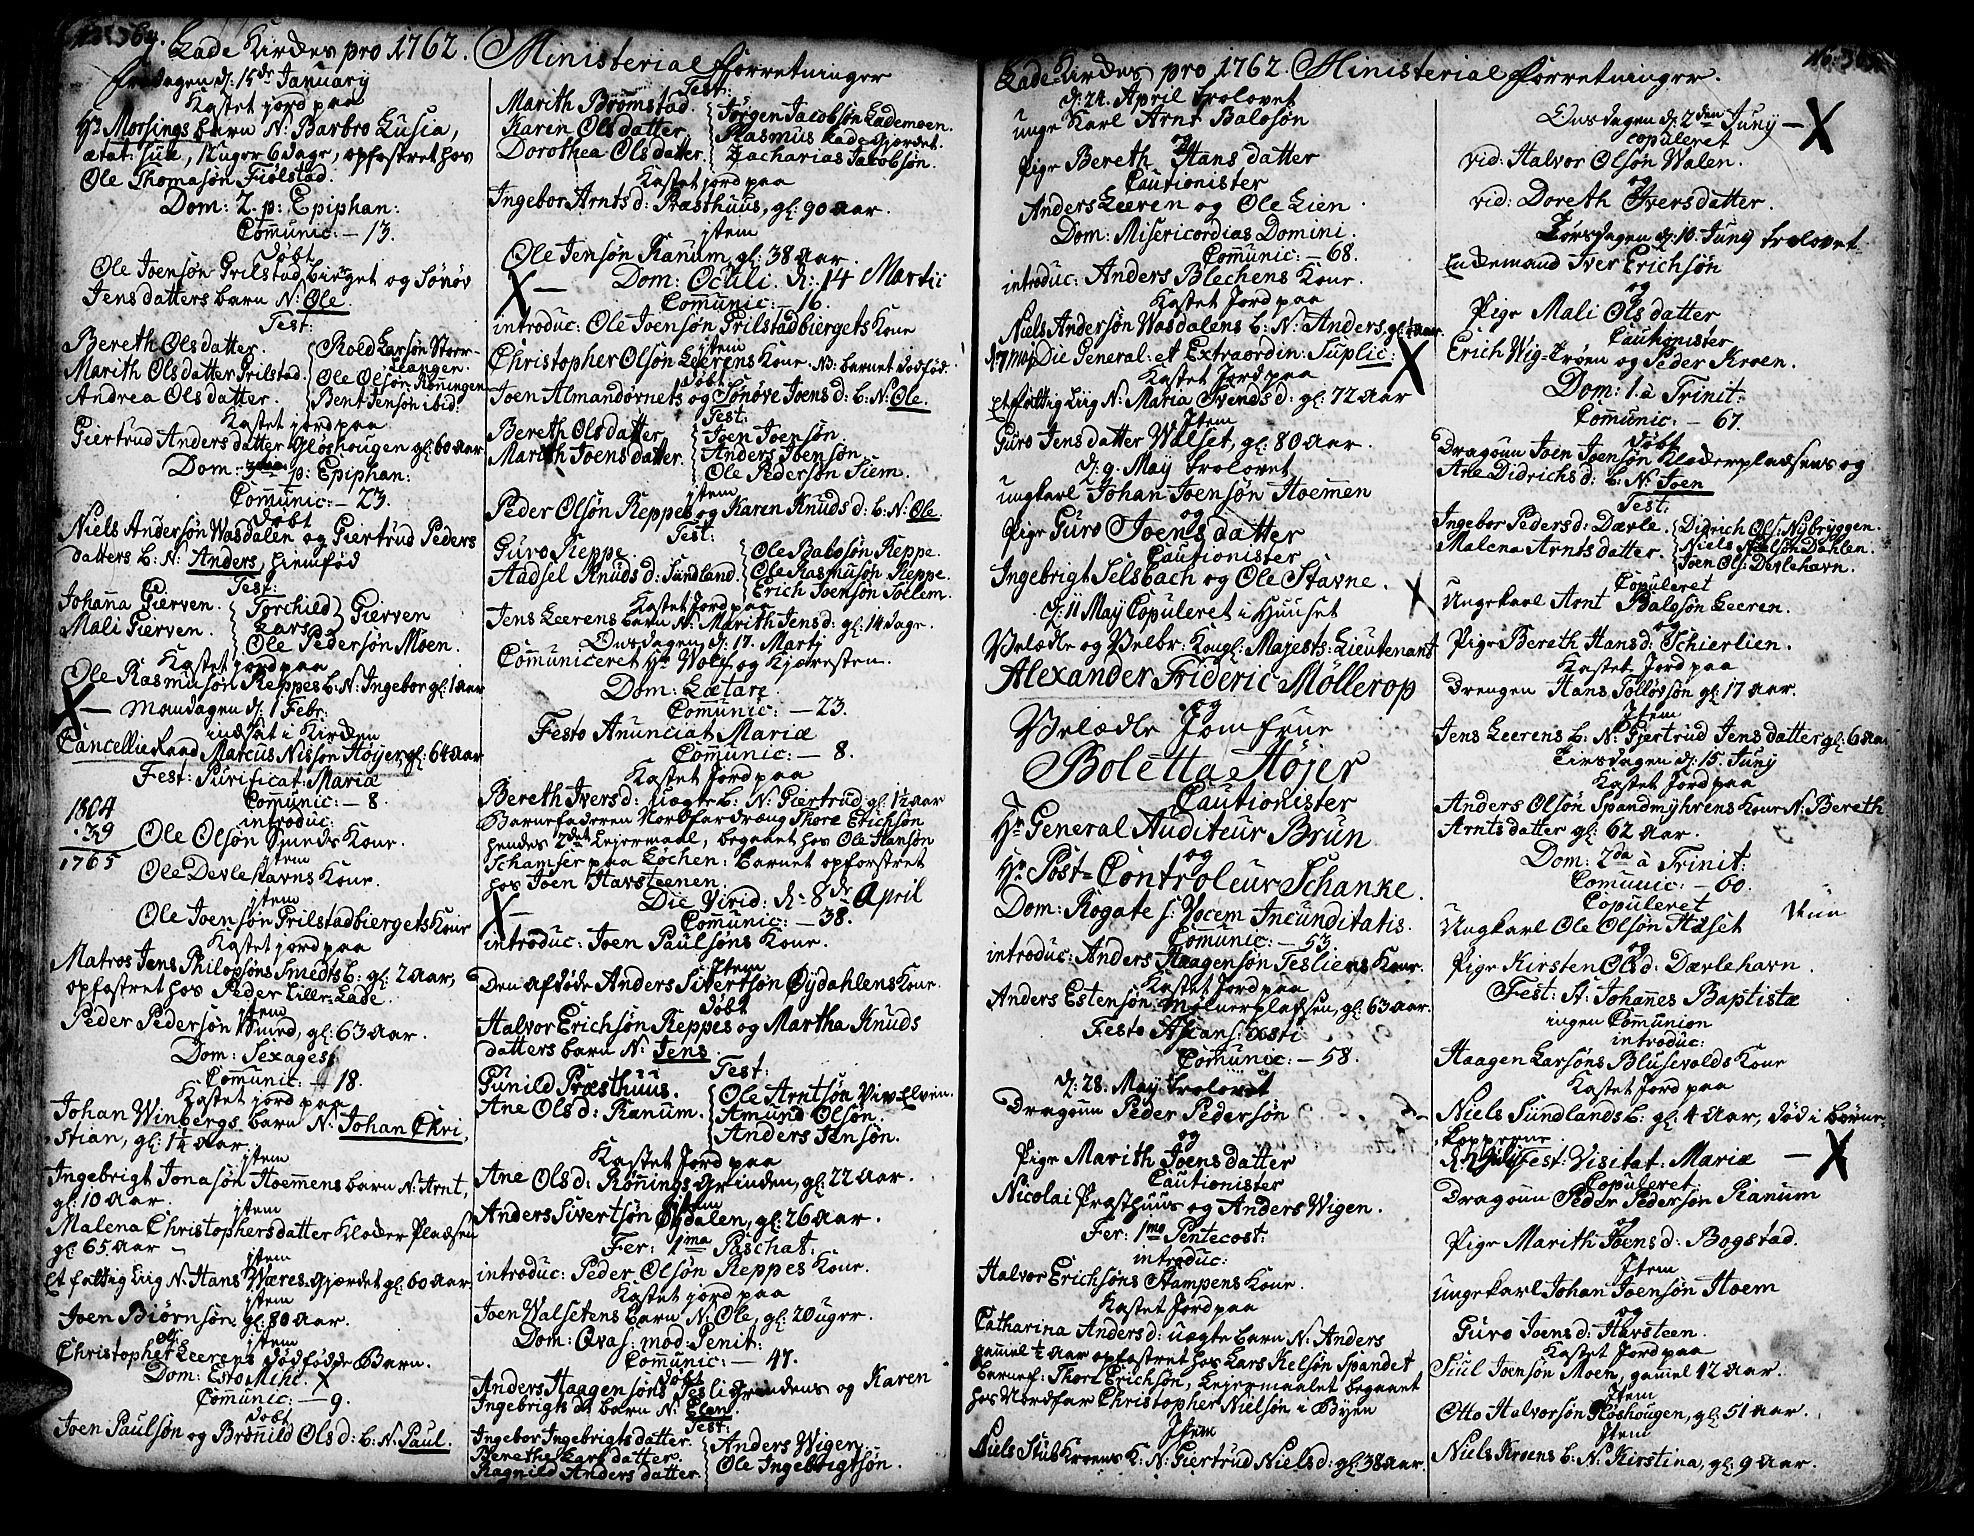 364.
Lade Kirckes pro 1762. Ministerial Forretninger
Fredagen d: 15de January
Kastet jord paa
Hr. Morsings barn N: Barbro Lusia,
ætat: suæ, 12 uger 6 dage, opfostret hos
Ole Thomasøn Fiølstad.
Dom: 2. p: Epiphan:
Comunic: – 13.
Døbt
Ole Joensøn Prilstad birget og Sønøv
Jens datters barn N: Ole.
Test:
Bereth Olsdatter.
Marith Olsdatter Prilstad.
Andrea Olsdatter.
Roald Larsøn Storr-
Langen.
Ole Olsøn Røningen
Bent Jensøn ibid:
Kastet jord paa
Giertrud Andersdatter Gløshougen gl: 60 aar
Dom: 3tia p: Epiphan:
Comunic: – 23.
Døbt
Niels Andersøn Wasdalen og Giertrud Peders
datters b: N: Anders, hiemfød
Test:
Johana Gierven.
Mali Gierven.
Torchild
Lars
Gierven
Ole Pedersøn Moen.
Kastet jord paa
Ole Rasmusøn Reppes b: N: Ingebor gl: 1 aar
X – Mandagen d: 1 Febr.
indsat i Kircken
Cancellieraad Marcus Nissøn Høyer, gl: 64 aar
Fest: Purificat: Mariæ
Comunic: – 8.
1804
39
1765
introduc:
Ole Olsøn Smeds Kone.
jtem
Ole Devle Havns Kone.
jtem
Ole Joensøn Prilstadbiergets Kone
Kastet jord paa
Matros Jens Philopsøns Smedts b: gl: 2 aar,
opfostret hos Peder Lille Lade.
jtem
Peder Pedersøn Smed, gl: 63 aar.
Dom: Sexages:
Comunic: – 18.
Kastet jord paa
Johan Winbergs barn N: Johan Chri,
stian, gl: 1½ aar.
jtem
Ingebrigt Jonasøn Hoemens barn N: Arnt,
gl: 10 aar.
jtem
Malena Christophersdatter Kloder Pladsen
gl: 65 aar –
jtem
Et fattig Liig N: Hans Wæres Gjærdet gl: 60 aar
jtem
Joen Biørnsøn gl: 80 aar.
jtem
Christopher Leerens dødfødde Barn.
Dom: Esto Mihi. X
Comunic: – 9.
Døbt
Joen Paulsøn og Bronild Olsd: b: N: Paul.
Test:
Marith Bromstad
Karen Olsdatter
Dorothea Olsdatter
Jørgen Jacobsøn Lademoen.
Rasmus Lade Gjordet.
Zacharias Jacobsøn.
Kastet jord paa
Ingebor Arntsd: Præsthuus, gl: 90 aar.
jtem
Ole Jensøn Ranum, gl: 38 aar.
X – Dom: Oculi. d: 14 Martii
Comunic: – 16.
introduc: Ole Joensøn Prilstadbiergets Kone
jtem
Christopher Olsøn Leerens Kone NB: barnet dødfød.
Døbt
Joen Almandørnets og Sønøve Joensd: b: N: Ole.
Test:
Bereth Olsdatter
Marith Joensdatter.
Joen Joensøn.
Anders Joensøn.
Ole Pedersøn Siem.
jtem
Peder Olsøn Reppes og Karen Knudsd: b: N: Ole.
Test:
Guro Reppe.
Aadsel Knudsd: Sundland.
Ole Babosøn Reppe.
Ole Rasmusøn Reppe.
Erich Joensøn Tollem.
Kastet Jord paa
Jens Leerens barn N: Marith Jensd: gl: 14 dage.
Onsdagen d: 17. Marti
Comuniceret Hr Wolf og Kjæresten.
Dom: Lætare
Comunic: – 23.
Festo Anunciat: Mariæ
Comunic: – 8.
Kastet Jord paa
Bereth Iversd: uægte b: N: Giertrud, gl: 1½ aar
Barnefaderen Nordfar dræng Thore Erichsøn
hendes 2det Lejermaal, begaaet hos Ole Hansøn
Schamser paa Løchen: Barnet opfostret
hos Joen Havsteenen.
X – Die Virid: d: 8de April
Comunic: – 38.
introduc: Joen Paulsøns Kone.
Jtem
Den afdøde Anders Sivertsøn Øydahlens Kone.
Døbt
Halvor Erichsøn Reppes og Martha Knuds
datters barn N: Jens
Test:
Gunild Præsthuus.
Ane Olsd: Ranum.
Ole Arntsøn Ved Elven.
Amund Olsøn.
Anders Jensøn.
Kastet Jord paa
Ane Olsd: Rønings Grinden, gl: 22 aar.
jtem
Anders Sivertsøn Øydalen, gl: 26 aar.
Fer: 1ma Paschat:
introduc: Peder Olsøn Reppes Kone.
Kastet jord paa
Joen Walsetens barn N: Ole, gl: 20 uger.
Dom: Qvas: mod: Genit:
Comunic: – 47.
Døbt
Anders Haagensøns Tesli Grindens og Karen
Ingebrigtsd: barn N: Elen.
Test:
Ingebor Ingebrigtsdatter.
Berethe Larsdatter
Ragnild Andersdatter
Anders Wigen.
Ole Ingebrigtsøn.
Lade Kirckes pro 1762. Ministerial Forretninger.
d: 24. April trolovet
unge Karl Arnt Balosøn
og
Pige Bereth Hansdatter
Cautionister
Anders Leeren og Ole Lien.
Dom: Misericordias Domini.
Comunic: – 68.
introduc: Anders Blechens Kone.
Kastet Jord paa
Niels Andersøn Wasdalens b: N: Anders, gl: ¼ aar.
Die General: et Extraordin: Suplic: X
Kastet Jord paa
Et fattig Liig N: Maria Svendsd: gl: 72 aar
Jtem
Guro Jensdatter Walset, gl: 80 aar.
d: 9. May trolovet
ungkarl Johan Joensøn Hoemen
og
Pige Guro Joensdatter
Cautionister
Ingebrigt Selsbach og Ole Stavne. X
d: 11 May Copuleret i Huuset
Velædle og Velbr: Kongl: Majests: Lieutenant
Alexander Frideric Möllerop
og
Velædle Jomfrue
Boletta Højer
Cautionister
Hr General Auditeur Brun
og
Hr Post-Controleur Schanke.
Dom: Rogate s: Vocem Jucunditatis.
Comunic: – 53.
introduc: Anders Haagensøn Tesliens Kone.
Kastet Jord paa
Anders Estensøn Mølnerpladsen, gl: 63 aar.
Festo Ascens: Xsti
Comunic: – 58.
d: 28. May trolovet
Dragoun Peder Pedersøn
og
Pige Marith Joensdatter
Cautionister
Nicolai Præsthuus og Anders Wigen.
Fer: 1ma Pentecost:
introduc:
Halvor Erichsøns Stampens Kone.
Kastet Jord paa
Catharina Andersd: uægte barn N: Anders
gammel ½ aar opfostret hos Lars Kelsøn Spandet
Barnef: Thore Erichsøn, Lejermaalet begaaet
hos Nordfar Christopher Nielsøn i Byen
Jtem
Niels Stub Kroens K: N: Giertrud Nielsd: gl: 38 aar.
Onsdagen d: 2den Juny – X
copuleret
vid: Halvor Olsøn Walen.
og
vid: Doreth Iversdatter.
Torsdagen d: 10. Juny trolovet
Enckemand Iver Erichsøn
og
Pige Mali Olsdatter
Cautionister
Erich Wig-Troen og Peder Kroen.
Dom: 1. à Trinit:
Comunic: – 67.
Døbt
Dragoun Joen Joensøn Kloderpladsens og
Ane Didrichsd: b: N: Joen
Test:
Ingebor Pedersd: Dævle.
Malena Arntsdatter.
Didrich Ols: Nybryggen.
Niels Nielsøn Dahlen.
Joen Ols: Devlehavn.
Copuleret
Ungekarl Arnt Balosøn Leeren.
og
Pige Bereth Hansd: Schierlien.
Kastet Jord paa
Drengen Hans Tolløssøn gl: 17 aar.
Jtem
Jens Leerens b: N: Gjertrud Jensdatter gl: 6 aar
Tirsdagen d: 15. Juny
Kastet Jord paa
Anders Olsøn Spandmyhrens Kone N: Bereth
Arntsdatter gl: 62 aar.
Dom: 2da à Trinit:
Comunic: – 60.
Copuleret
Ungkarl Ole Olsøn Halset
og
Pige Kirsten Olsd: Dævlehavn.
Fest: St: Johañes Baptistæ
ingen Comunion
introduc:
Haagen Larsøns Blusevolds Kone
Kastet Jord paa
Niels Sundlands b: gl: 4 aar, død i børne-
kopperne.
Fest: Visitat: Mariæ – X
Copuleret
Dragoun Peder Pedersøn Ranum
og
Pige Marith Joensd: Bogstad.
Jtem
ungekarl Johan Joensøn Hoem
og
Guro Joensd: Havsteen.
Kastet Jord paa
Siul Joensøn Moen, gammel 42 aar.
Jtem
Otto Halvorsøn Gloshougen, gl: 51 aar.
Jtem
Niels Kroens b: N: Kirstina, gl: 9 aar.